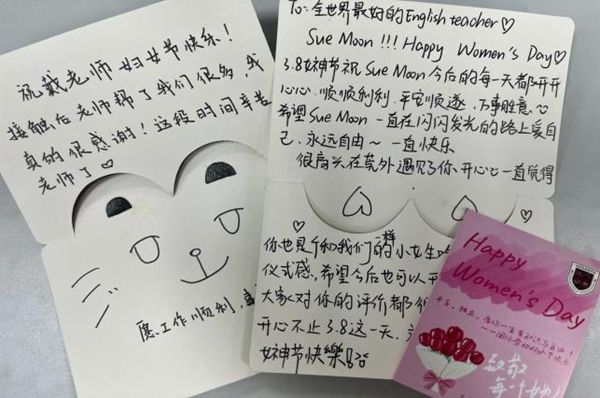 祝戴老师妇女节快乐！
接触后老师帮了我们很多，我
真的很感谢！这段时间辛苦
老师了♡
愿工作顺利，
To：全世界最好的English teacher♡
Sue Moon !!! Happy Women's Day♡
3.8女神节祝Sue Moon今后的每一天都开开
心心、顺顺利利，平安顺遂，万事胜意
希望Sue Moon一直在闪闪发光的路上爱自
己，永远自由～ 一直快乐
很高兴在莞外遇见了你、开心 一直觉得
你也是个和我们一样的小女生
仪式感，希望今后也可以开
大家对你的评价都
开心不止3.8这一天，
女神节快樂!
Happy
Women's Day
致敬
每个她！